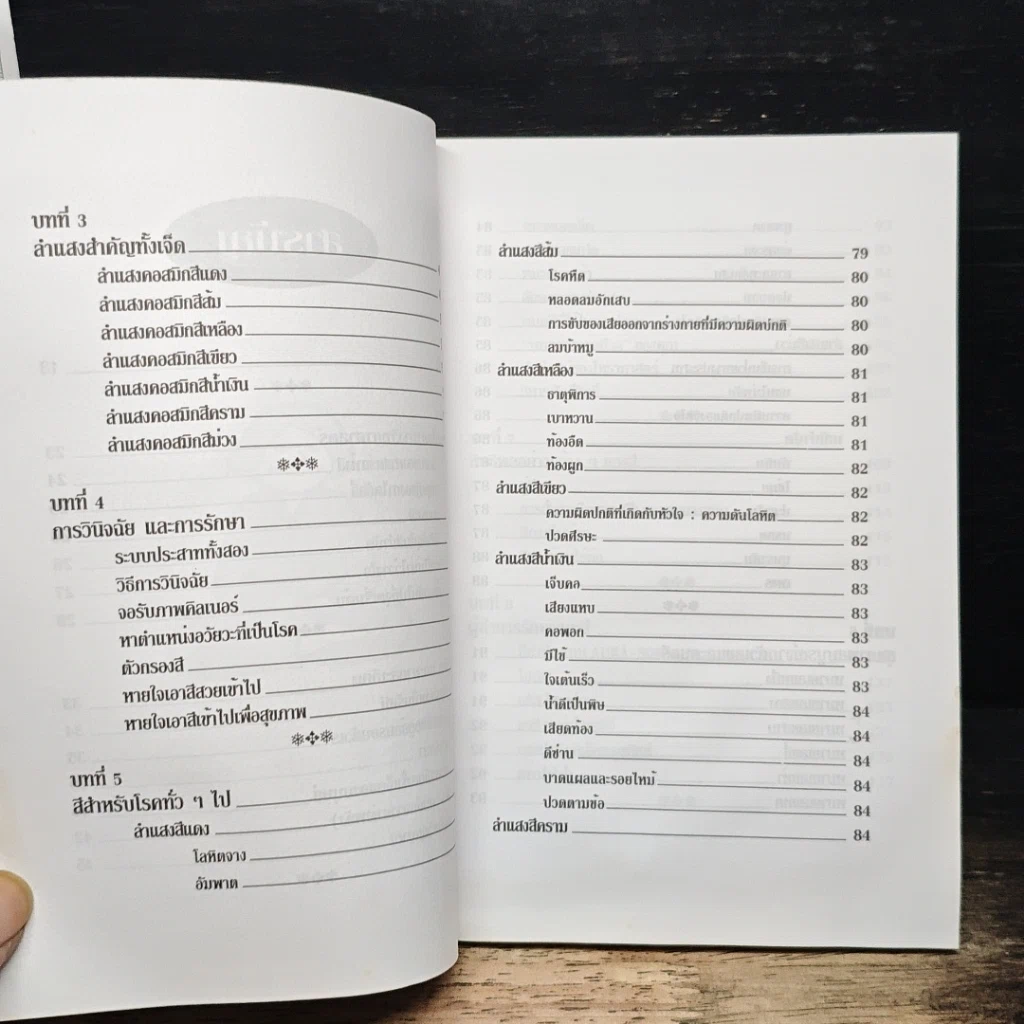 บทที่ 3
ลำแสงสำคัญทั้งเจ็ด
ลำแสงคอสมิกสีแดง
ลำแสงคอสมิกสีส้ม
ลำแสงคอสมิกสีเหลือง
ลำแสงคอสมิกสีเขียว
ลำแสงคอสมิกสีน้ำเงิน
ลำแสงคอสมิกสีคราม
ลำแสงคอสมิกสีม่วง
บทที่ 4
การวินิจฉัย และการรักษา
ระบบประสาททั้งสอง
วิธีการวินิจฉัย
จอรับภาพคิลเนอร์
หาตำแหน่งอวัยวะที่เป็นโรค
ตัวกรองสี
หายใจเอาสีสวยเข้าไป
หายใจเอาสีเข้าไปเพื่อสุขภาพ
บทที่ 5
สีสำหรับโรคทั่ว ๆ ไป
ลำแสงสีแดง
โลหิตจาง
อัมพาต
ลำแสงสีส้ม 79
โรคหืด 80
หลอดลมอักเสบ 80
การขับของเสียออกจากร่างกายที่มีความผิดปกติ 80
ลมบ้าหมู 80
ลำแสงสีเหลือง 81
ธาตุพิการ 81
เบาหวาน 81
ท้องอืด 81
ท้องผูก 82
ลำแสงสีเขียว 82
ความผิดปกติที่เกิดกับหัวใจ : ความดันโลหิต 82
ปวดศีรษะ 82
ลำแสงสีน้ำเงิน 83
เจ็บคอ 83
เสียงแหบ 83
คอพอก 83
มีไข้ 83
ใจเต้นเร็ว 83
น้ำดีเป็นพิษ 84
เสียดท้อง 84
ดีซ่าน 84
บาดแผลและรอยไหม้ 84
ปวดตามข้อ 84
ลำแสงสีคราม 84